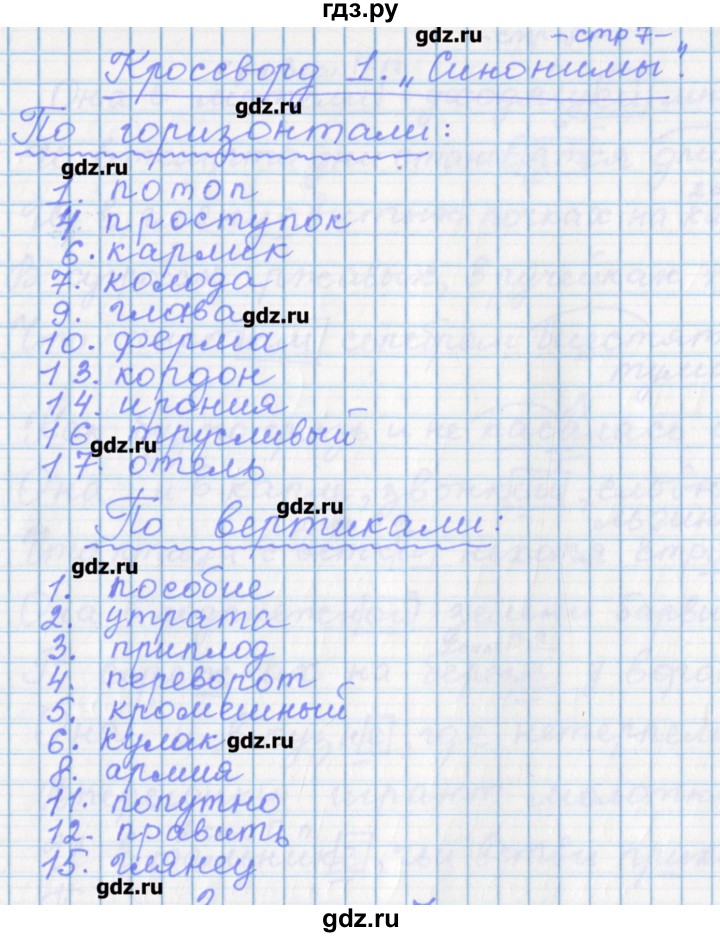 гдз.ру
gdz.ru
- стр 7 -
Кроссворд 1. „Синонимы".
gdz.ru
По горизонтали:
gdz.ru
1. потоп
4 проступок
6. карлик
7. колода
9. глава
gdz.ru
10. ферма
13. кордон
14. ирония
16. трусливый
gdz.ru
17. отель
gdz.ru
По вертикали:
gdz.ru
1. пособие
2. утрата
3. приплод
4. переворот
5. кромешный
6. кулак
gdz.ru
8. армия
11. попутно
12. править
15. глянец
gdz.ru
gdz.ru